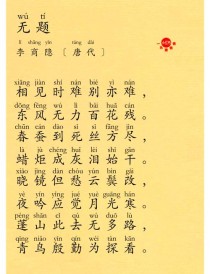 wú tí
无题
lǐ shāng yǐn táng dài
李商隐［唐代］
xiāng jiàn shí nán bié yì nán
相见时难别亦难，
dōng fēng wú lì bǎi huā cán
东风无力百花残。
chūn cán dào sǐ sī fāng jìn
春蚕到死丝方尽，
là jù chéng huī lèi shǐ gān
蜡炬成灰泪始干。
xiǎo jìng dàn chóu yún bìn gǎi
晓镜但愁云鬓改，
yè yín yīng jué yuè guāng hán
夜吟应觉月光寒。
péng shān cǐ qù wú duō lù
蓬山此去无多路，
qīng niǎo yīn qín wèi tàn kān
青鸟殷勤为探看。